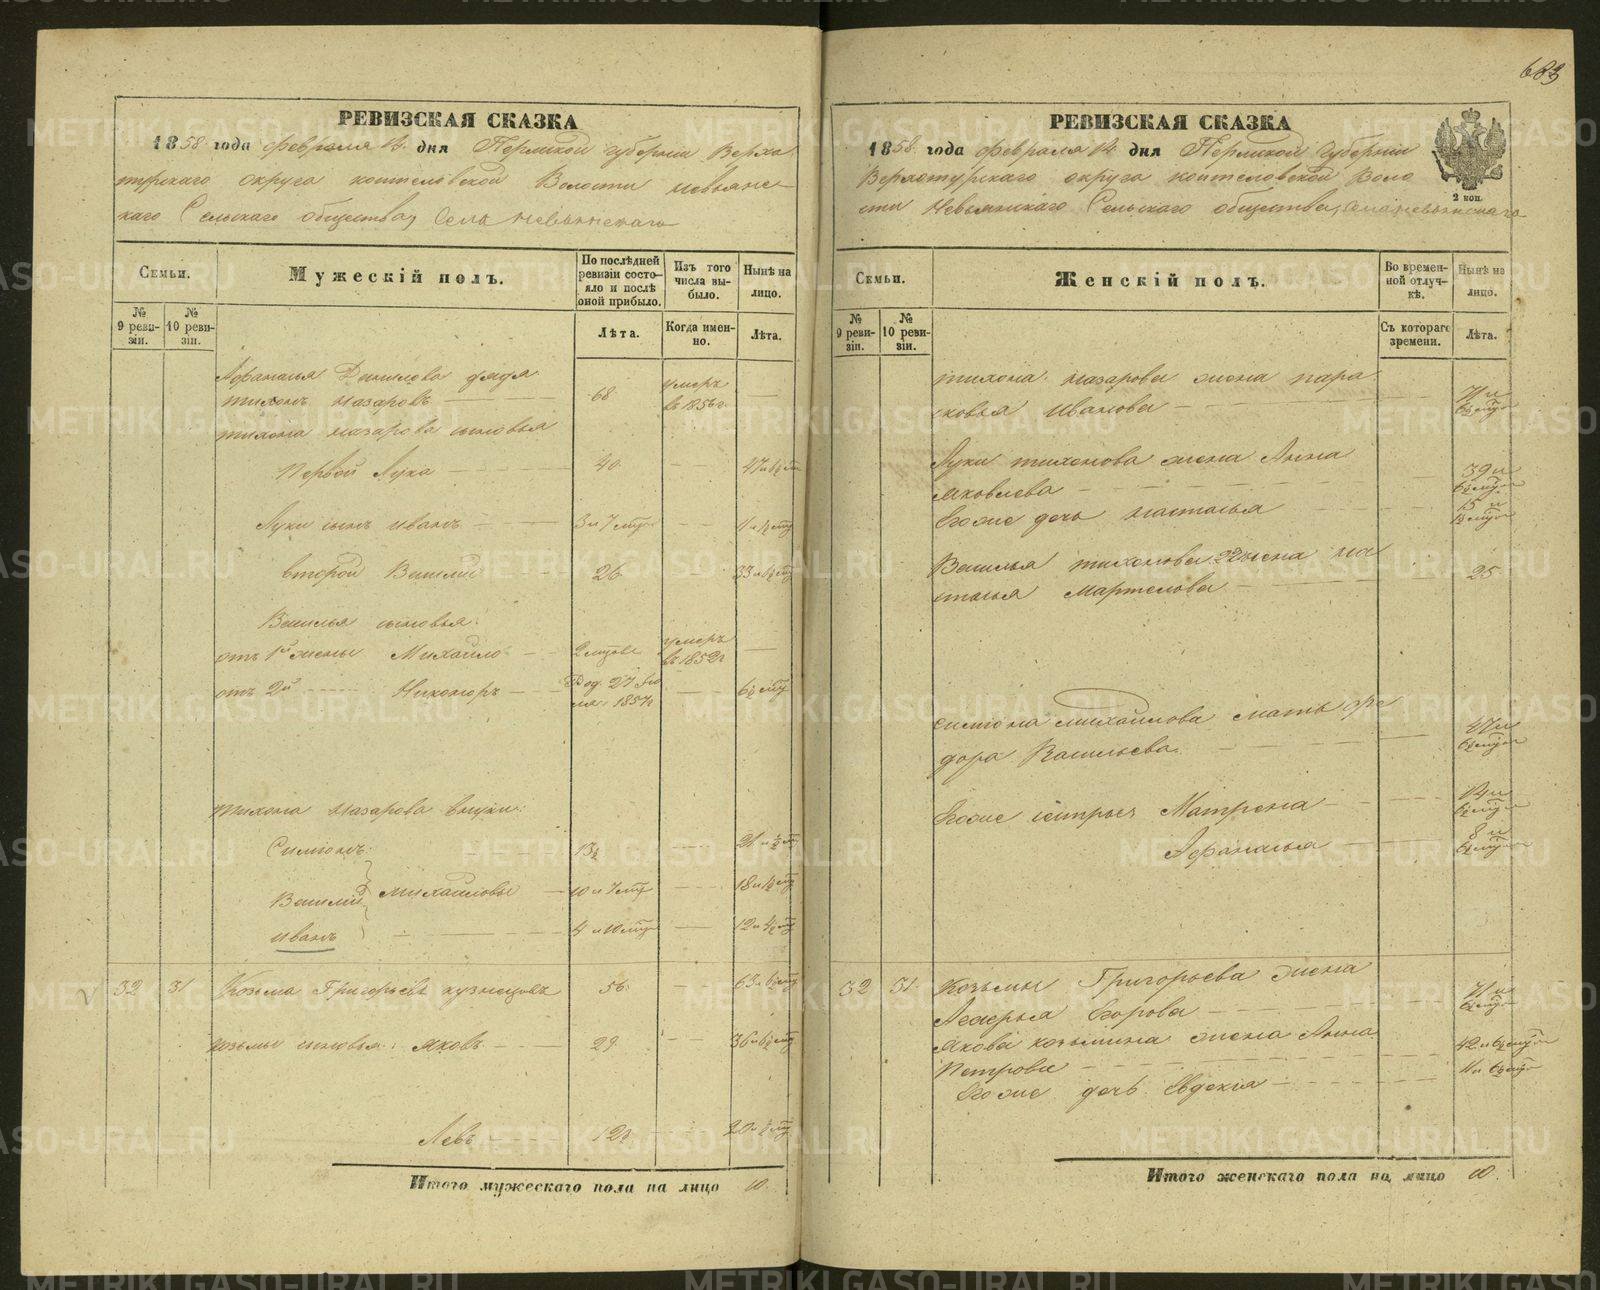 683
РЕВИЗСКАЯ СКАЗКА
1858 года февраля 14 дня Пермской губернии Верхо
турскаго округа коптеловской Волости невьянс
каго Сельскаго общества, Села невьянскаго
Семьи.
Мужескій полъ.
По послѣдней ревизіи состояло и послѣ оной прибыло.
Изъ того числа выбыло.
Нынѣ на лицо.
№ 9 ревизіи.
№ 10 ревизіи.
Лѣта.
Когда именно.
Лѣта.
Афанасья Данилова дядя
тихонъ назаровъ 68 умеръ в 1856 г
тихона назарова сыновья
первой Лука 40 47 и 6½ мц
Луки сынъ иванъ 3 и 7 мцо
второй Василий 26 33 и 6½ мц
Василья сыновья:
отъ 1й жены Михайло 2 мцовъ умеръ въ 1852 г
отъ 2й Никоноръ Род. 27 1857 г 6½ мцо
тихона назарова внуки:
Симионъ 13½ 21 и мц
Василий Михайловы 10 и 7 мц 18 и 1½ мц
иванъ 4 и 10 мцо 12 и 4½ мц
32 31 Козьма Григорьевъ кузнецовъ 56 63 и 6½ мц
козьмы сыновья: яковъ 29 36 и 6½ мц
Левъ 12½ 20 и мц
Итого мужескаго пола на лицо 10.
РЕВИЗСКАЯ СКАЗКА
1858 года февраля 14 дня Пермской губернии
Верхотурскаго округа коптеловской Воло
сти Невьянскаго Сельскаго общества, села невьянскаго
2 коп.
Семьи.
Женскій полъ.
Во временной отлучкѣ.
Нынѣ на лицо.
№ 9 ревизіи.
№ 10 ревизіи.
Съ котораго времени.
Лѣта.
тихона назарова жена пара
сковья Иванова 71 и 6½ мцо
Луки тихонова жена Анна
яковлева 39 и 6½ мцо
Егоже дочь настасья 15 и 1½ мцо
Василья тихонова 2я жена на
стасья Мартемова 25
симиона михайлова мать фе
дора Васильева 47 и 6½ мцо
Егоже сестры Матрена 14 и 6½ мцо
Афанасья 8 и 6½ мцо
32 31. Козьмы Григорьева жена
Лукерья Егорова 71 и 6½ мцо
якова козьмина жена Анна 42 и 6½ мцо
Петрова 11 и 6½ мцо
Егоже дочь Евдокия
Итого женскаго пола на лицо 10.
METRIKI.GASO-URAL.RU